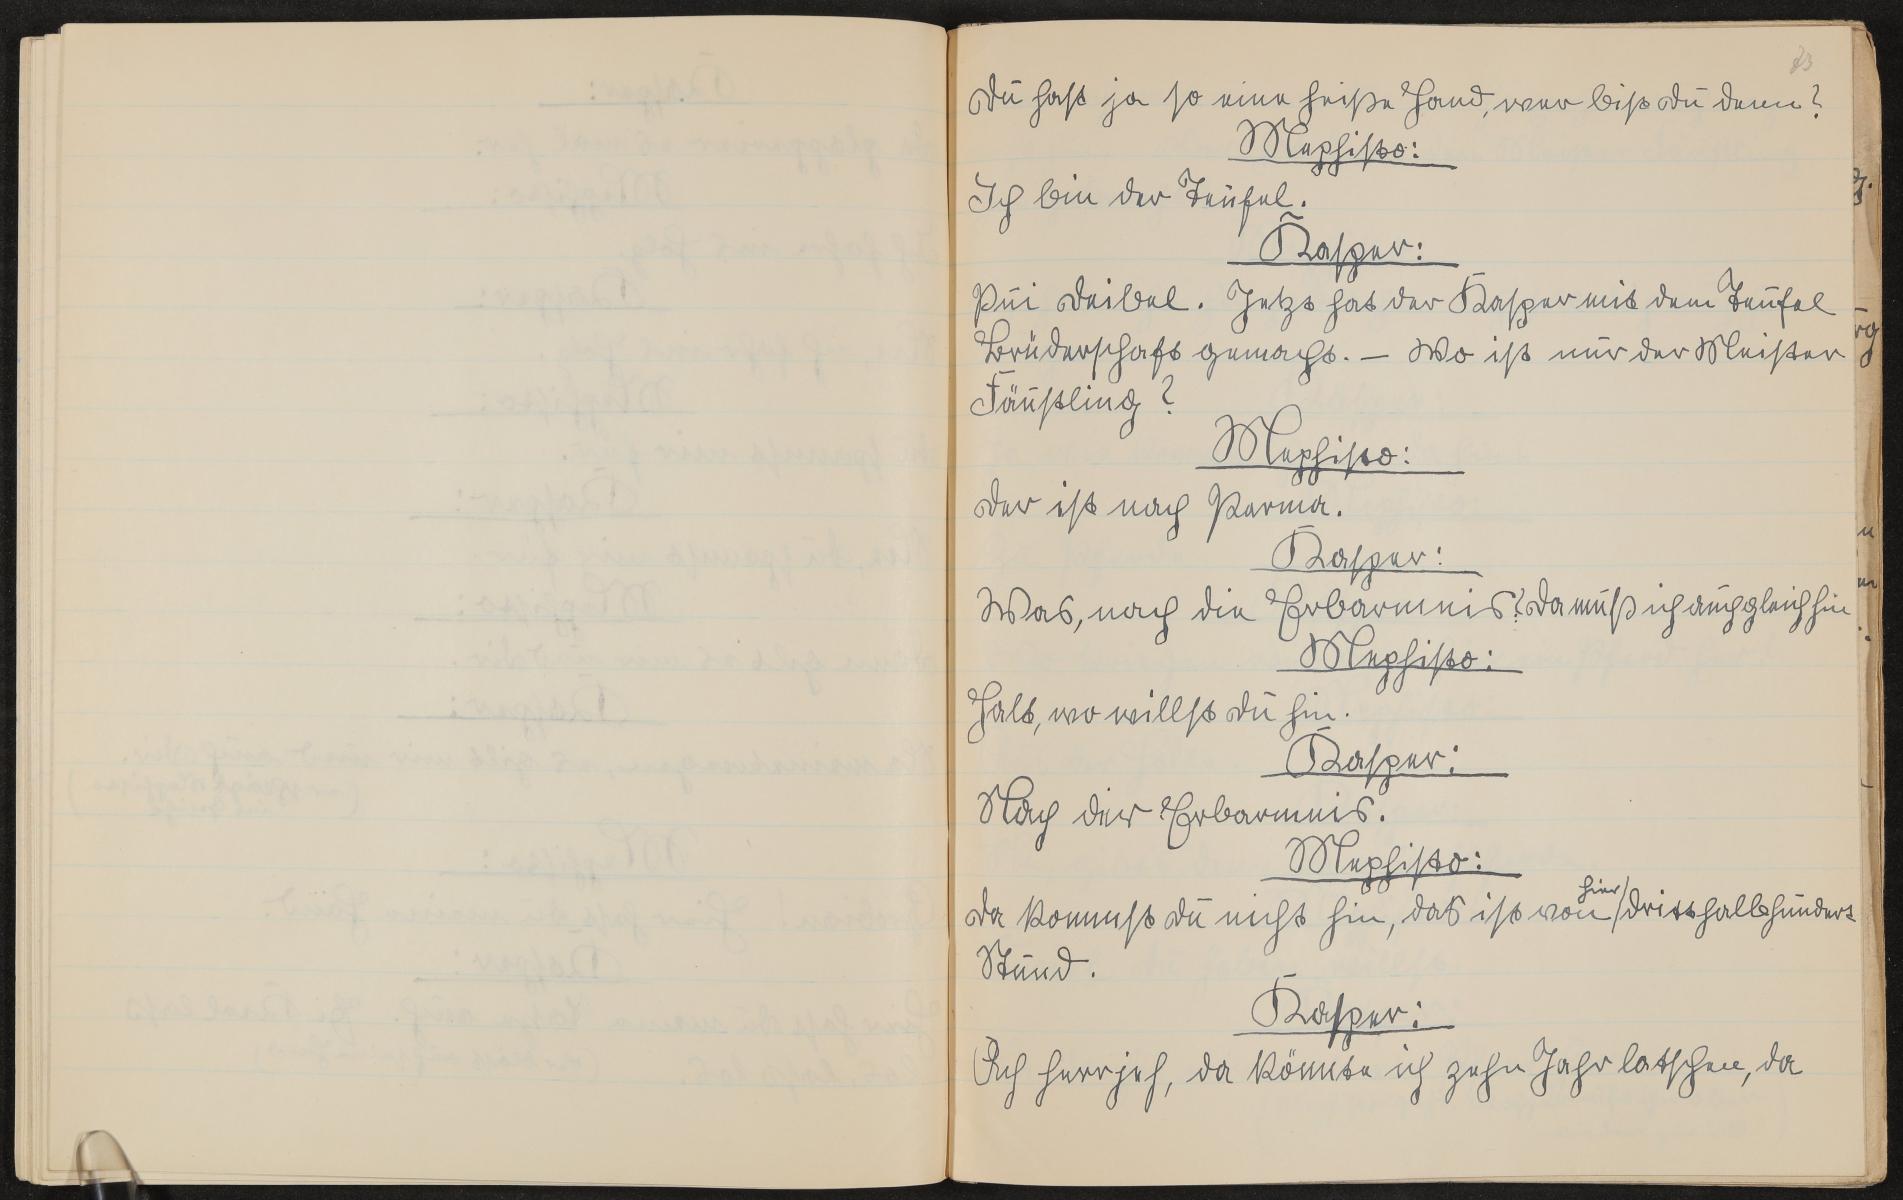 73
Du hast ja so eine heiße Hand, wer bist du denn?
Mephisto:
Ich bin der Teufel.
Kasper:
Pui Deibel. Jetzt hat der Kasper mit dem Teufel
Brüderschaft gemacht. – Wo ist nur der Meister
Fäustling?
Mephisto:
Der ist nach Parma.
Kasper:
Was, nach die Erbarmnis? Da muß ich auch gleich hin
Mephisto:
Halt, wo willst du hin.
Kasper:
Nach der Erbarmnis.
Mephisto:
hier
Da kommst du nicht hin, das ist von / dritthalbhundert
Stund.
Kasper:
Ach herrjeh, da könnte ich zehn Jahr latschen, da